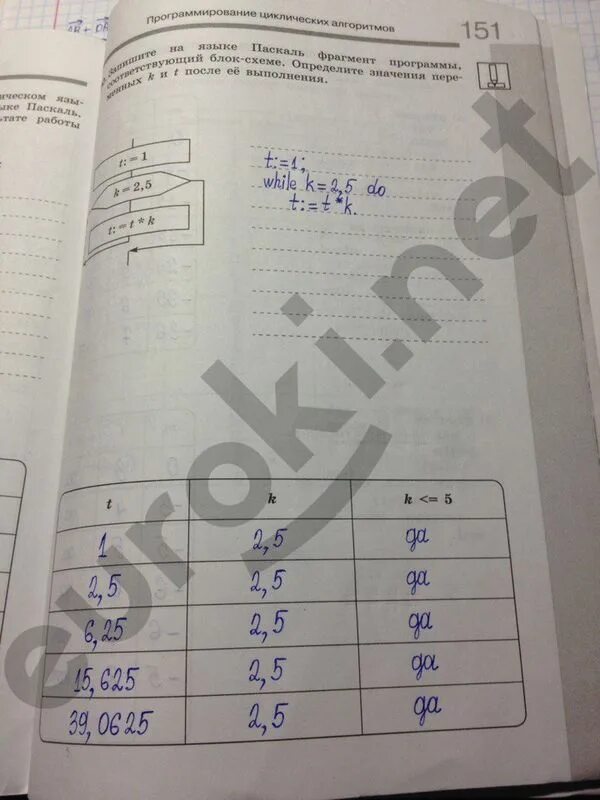 Программирование циклических алгоритмов
151
Запишите на языке Паскаль фрагмент программы,
соответствующий блок-схеме. Определите значения пере-
менных k и t после её выполнения.
ыке Паскаль.
тате работы
t: = 1
k = 2,5
t: = t * k
t:=1;
while k=2,5 do
t:=t*k.
t k k <= 5
1 2,5 да
2,5 2,5 да
6,25 2,5 да
15,625 2,5 да
39,0625 2,5 да
euroki.net